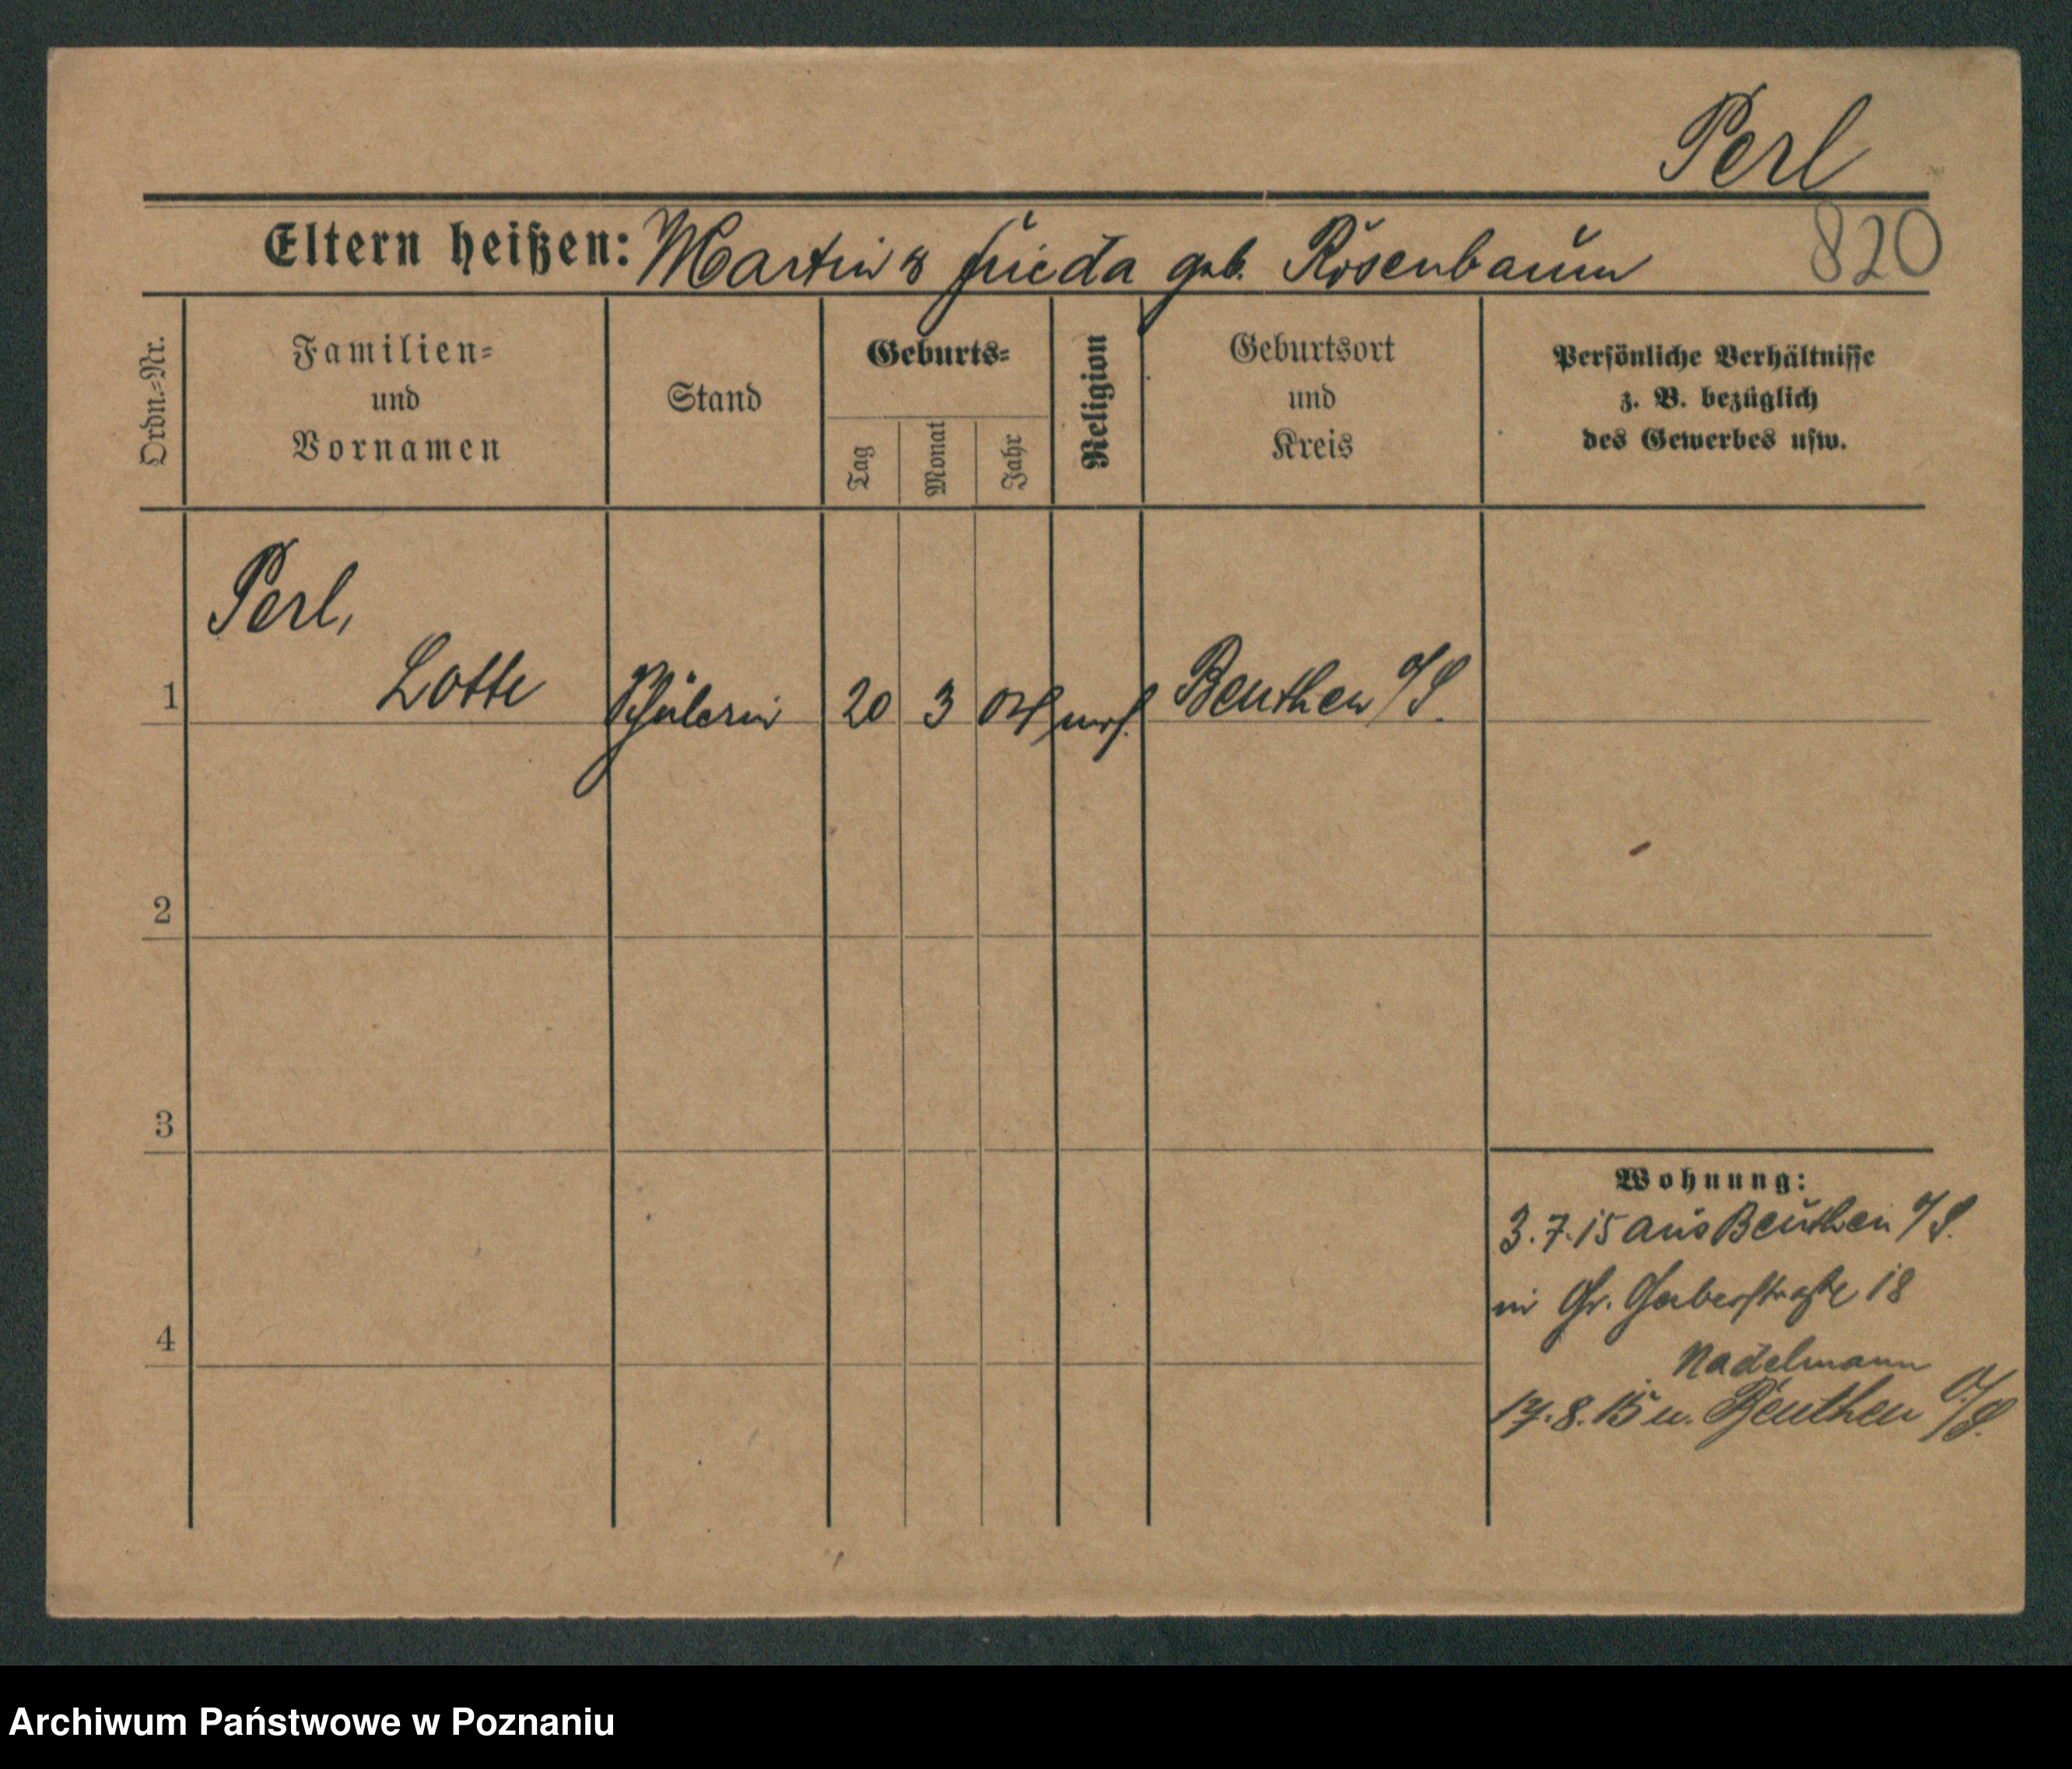 Perl
Eltern heißen: Martin & Frieda geb. Rosenbaum 820
Ordn.=Nr.
Familien=
und
Vornamen
Stand
Geburts=
Tag
Monat
Jahr
Religion
Geburtsort
und
Kreis
Persönliche Verhältnisse
z. B. bezüglich
des Gewerbes usw.
Perl,
1 Lotte Schülerin 20 3 04 mos. Beuthen O/S.
2
3
4
Wohnung:
3.7.15 aus Beuthen O/S.
in Gr. Gerberstraße 18
Nadelmann
17.8.15 n. Beuthen O/S.
Archiwum Państwowe w Poznaniu